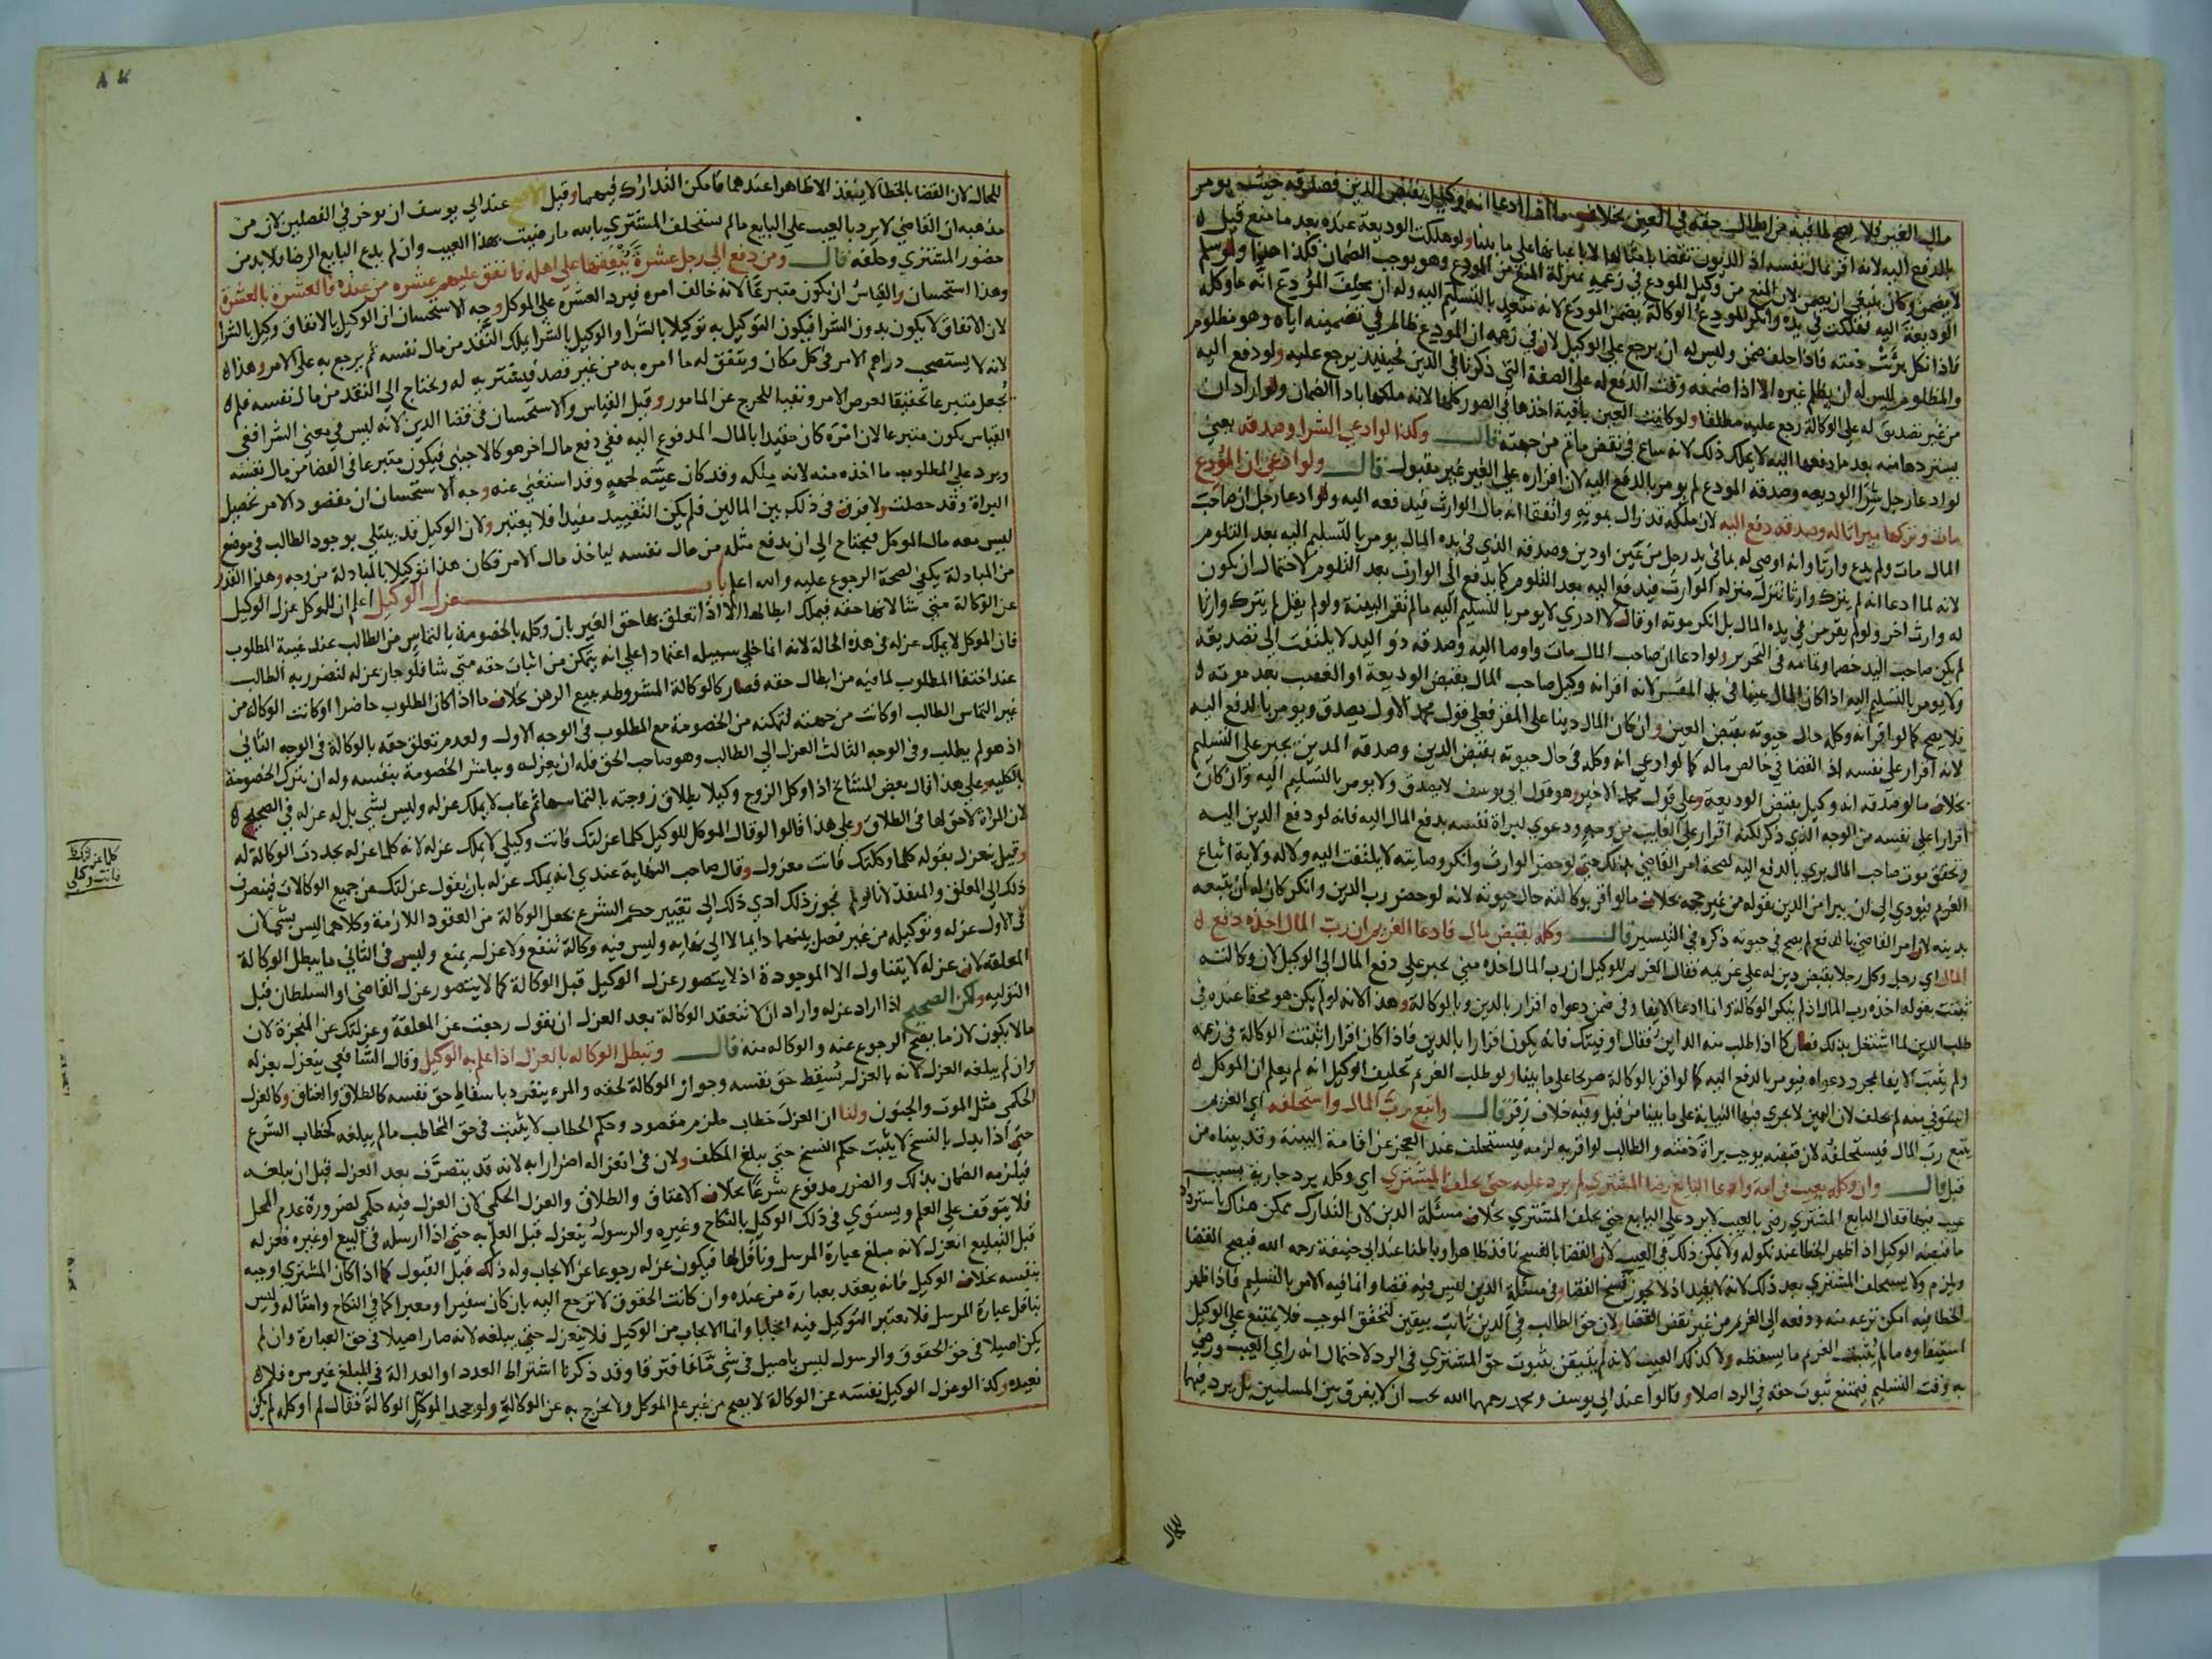 مال الغير فلا يصح لما فيه من ابطال حقه في العين بخلاف ما اذا ادعا انه وكيل بقبض الدين فصدقه حيث يومر
بالدفع اليه لانه اقر بمال نفسه اذ الديون تقضا بامثالها لا باعيانها على ما بينا ولو هلكت الوديعة عنده بعد ما منع قيل لا
يضمن وكان ينبغي ان يضمن لان المنع من وكيل المودع في زعمه بمنزلة المنع من المودع وهو يوجب الضمان فكذا هذا ولو سلم
الوديعة اليه فهلكت في يده وانكر المودع الوكالة يضمن المودع لانه متعد بالتسليم اليه وله ان يحلف المودع انه ما وكله
فاذا نكل برئت ذمته فاذا حلف ضمن وليس له ان يرجع على الوكيل لان في زعمه ان المودع ظالم في تضمينه اياه وهو مظلوم
والمظلوم ليس له ان يظلم غيره الا اذا ضمنه وقت الدفع له على الصفة التي ذكرنا في الدين فحينيذ يرجع عليه ولو دفع اليه
من غير تصديق له على الوكالة رجع عليه مطلقا ولو كانت العين باقية اخذها في الصور كلها لانه ملكها باداء الضمان ولو اراد ان
يستردها منه بعد ما دفعها اليه لا يملك ذلك لانه ساع في نقض ما تم من جهته قال وكذا لو ادعي الشرا وصدقه يعني
لو ادعا رجل شرا الوديعه وصدقه المودع لم يومر بالدفع اليه لان اقراره على الغير غير مقبول قال ولو ادعي ان المودع
مات وتركها ميراثا له وصدقه دفع اليه لان ملكه قد زال بموته واتفقا انه مال الوارث فيدفعه اليه ولو ادعا رجل ان صاحب
المال مات ولم يدع وارثا وانه اوصي له بما في يد رجل من عين او دين وصدقه الذي في يده المال يومر بالتسليم اليه بعد التلوم
لانه لما ادعا انه لم يترك وارثا نزل منزله الوارث فيدفع اليه بعد التلوم كما يدفع الي الوارث بعد التلوم لاحتمال ان يكون
له وارث اخر ولو لم يقر من في يده المال بل انكر موته او قال لا ادري لا يومر بالتسليم اليه ما لم تقم البينة ولو لم يقل لم يترك وارثا
لم يكن صاحب اليد خصما وتمامه في التحرير ولو ادعا ان صاحب المال مات واوصا اليه وصدقه ذو اليد لا يلتفت الي تصديقه
ولا يومر بالتسليم اليه اذا كان المال عينا في يد المقر لانه اقر انه وكيل صاحب المال بقبض الوديعة او الغصب بعد موته
فلا يصح كما لو اقر انه وكله حال حيوته بقبض العين وان كان المال دينا على المقر فعلى قول محمد الاول يصدق ويومر بالدفع اليه
لانه اقرار على نفسه اذ القضا في خالص ماله كما لو ادعي انه وكله في حال حيوته بقبض الدين وصدقه المدين يجبر على التسليم
بخلاف ما لو صدقه انه وكيل بقبض الوديعة وعلى قول محمد الاخير وهو قول ابي يوسف لا يصدق ولا يومر بالتسليم اليه وان كان
اقرارا على نفسه من الوجه الذي ذكر لكنه اقرار على الغايب من وجه ودعوي لبراة نفسه بدفع المال اليه فانه لو دفع الدين اليه
وتحقق موت صاحب المال بري بالدفع اليه لصحة امر القاضي بذلك حتي لو حضر الوارث وانكر وصايته لا يلتفت اليه ولا له ولاية اتباع
الغريم فيودي الى ان يبرا من الدين بقوله من غير حجه بخلاف ما لو اقر بوكالته حال حيوته لانه لو حضر رب الدين وانكر كان له ان يتبعه
بدينه لان امر القاضي بالدفع لم يصح في حيوته ذكره في التيسير قال وكله بقبض مال فادعا الغريم ان رب المال اخذه دفع
المال اي رجل وكل رجلا بقبض دين له على غريمه فقال الغريم للوكيل ان رب المال اخذه مني يجبر على دفع المال الى الوكيل لان وكالته
ثبتت بقوله اخذه رب المال اذ لم ينكر الوكالة وانما ادعا الايفا وفي ضمن دعواه اقرار بالدين وبالوكالة وهذا لانه لو لم يكن هو محقا عنده في
طلب الدين لما اشتغل بذلك فصار كما اذا طلب منه الداين فقال اوفيتك فانه يكون اقرارا بالدين فاذا كان اقرارا ثبتت الوكالة في زعمه
ولم يثبت الايفا بمجرد دعواه فيومر بالدفع اليه كما لو اقر بالوكالة صريحا على ما بينا ولو طلب الغريم تحليف الوكيل انه لم يعلم ان الموكل
استوفي منه لم يحلف لان اليمين لا يجري فيها النيابة على ما بينا من قبل وفيه خلاف زفر قال واتبع رب المال واستحلفه اي الغريم
يتبع رب المال فيستحلفه لان قبضه يوجب براة ذمته والطالب لو اقر به لزمه فيستحلف عند العجز عن اقامة البينة وقد بيناه من
قبل قال وان وكله بعيب في امة وادعا البايع رضا المشتري لم يرد عليه حتي يحلف المشتري اي وكله برد جارية بسبب
عيب فيها فقال البايع المشتري رضي بالعيب لا يرد على البايع حتي يحلف المشتري بخلاف مسئلة الدين لان التدارك ممكن هناك باسترداد
ما قبضه الوكيل اذ اظهر الخطا عند نكوله ولا يمكن ذلك في العيب لان القضا بالفسخ نافذ ظاهرا وباطنا عند ابي حنيفة رحمه الله فيصح القضا
ويلزم ولا يستحلف المشتري بعد ذلك لانه لا يفيد اذ لا يجوز فسخ القضا وفي مسئلة الدين ليس فيه قضا وانما فيه الامر بالتسليم فاذا ظهر
الخطا فيه امكن نزعه منه ودفعه الى الغريم من غير نقض القضا ولان حق الطالب في الدين ثابت بيقين لتحقق الموجب فلا يمتنع على الوكيل
استيفاوه ما لم يثبت الغريم ما يسقطه ولا كذلك العيب لانه لم يتيقن بثبوت حق المشتري في الرد لاحتمال انه راي العيب ورضي
به وقت التسليم فيمتنع ثبوت حقه في الرد اصلا وقالوا عند ابي يوسف ومحمد رحمهما الله يجب ان لا يفرق بين المسلتين بل يرد فيهما
للحال
للحال لان القضا بالخطا لا ينفذ الا ظاهرا عندهما فامكن التدارك فيهما وقيل الاصح عند ابي يوسف ان يوخر في الفصلين لان من
مذهبه ان القاضي لا يرد بالعيب على البايع ما لم يستحلف المشتري بالله ما رضيت بهذا العيب وان لم يدع البايع الرضا فلا بد من
حضور المشتري وحلفه قال ومن دفع الى رجل عشرة ينفقها على اهله فانفق عليهم عشره من عنده فالعشرة بالعشرة
وهذا استحسان والقياس ان يكون متبرعا لانه خالف امره فيرد العشرة على الموكل وجه الاستحسان ان الوكيل بالانفاق وكيل بالشرا
لان الانفاق لا يكون بدون الشرا فيكون التوكيل به توكيلا بالشرا والوكيل بالشرا يملك النقد من مال نفسه ثم يرجع به على الامر وهذا
لانه لا يستصحب دراهم الامر في كل مكان ويتفق له ما امره به من غير قصد فيشتريه له ويحتاج الى النقد من مال نفسه فلم
يجعل متبرعا تحقيقا لغرض الامر ونفيا للحرج عن المامور وقيل القياس والاستحسان في قضا الدين لانه ليس في معنى الشرا ففي
القياس يكون متبرعا لان امره كان مقيدا بالمال المدفوع اليه ففي دفع مال اخر هو كالاجنبي فيكون متبرعا في القضا من مال نفسه
ويرد على المطلوب ما اخذه منه لانه ملكه وقد كان عينه لجهة وقد استغني عنه وجه الاستحسان ان مقصود الامر تحصيل
البراة وقد حصلت ولا فرق في ذلك بين المالين فلم يكن التقييد مفيدا فلا يعتبر ولان الوكيل قد يبتلي بوجود الطالب في موضع
ليس معه مال الموكل فيحتاج الي ان يدفع مثله من مال نفسه لياخذ مال الامر فكان هذا توكيلا بالمبادلة من وجه وهذا القدر
من المبادلة يكفي لصحة الرجوع عليه والله اعلم باب عزل الوكيل اعلم ان للموكل عزل الوكيل
عن الوكالة متي شا لانها حقه فيملك ابطالها الا اذا تعلق بها حق الغير بان وكله بالخصومة بالتماس من الطالب عند غيبة المطلوب
فان الموكل لا يملك عزله في هذه الحالة لانه انما خلي سبيله اعتمادا على انه يتمكن من اثبات حقه متي شا فلو جاز عزله لتضرر به الطالب
عند اختفا المطلوب لما فيه من ابطال حقه فصار كالوكالة المشروطه ببيع الرهن بخلاف ما اذا كان المطلوب حاضرا او كانت الوكاله من
غير التماس الطالب او كانت من جهته لتمكنه من الخصومة مع المطلوب في الوجه الاول ولعدم تعلق حقه بالوكالة في الوجه الثاني
اذ هو لم يطلب وفي الوجه الثالث العزل الي الطالب وهو صاحب الحق فله ان يعزله ويباشر الخصومة بنفسه وله ان يترك الخصومة
بالكليه وعلى هذا قال بعض المشائخ اذا وكل الزوج وكيلا بطلاق زوجته بالتماسها ثم غاب لا يملك عزله وليس بشي بل له عزله في الصحيح
لان المراة لا حق لها في الطلاق وعلى هذا قالوا لو قال الموكل للوكيل كلما عزلتك فانت وكيلي لا يملك عزله لانه كلما عزله تجددت الوكالة له
وقيل ينعزل بقوله كلما وكلتك فانت معزول وقال صاحب النهاية عندي انه يملك عزله بان يقول عزلتك عن جميع الوكالات فينصرف
ذلك الى المعلق والمنفذ لانا لو لم نجوز ذلك ادي ذلك الى تغيير حكم الشرع بجعل الوكالة من العقود اللازمة وكلاهما ليس بشي لان
في الاول عزله وتوكيله من غير فصل بينهما دايما لا الي نهايه وليس فيه وكالة تنفع ولا عزل يمنع وليس في الثاني ما يبطل الوكالة
المعلقه لان عزله لا يتناول الا الموجودة اذ لا يتصور عزل الوكيل قبل الوكالة كما لا يتصور عزل القاضي او السلطان قبل
التوليه ولكن الصحيح اذا اراد عزله واراد ان لا تنعقد الوكالة بعد العزل ان يقول رجعت عن المعلقة وعزلتك عن المنجزة لان
ما لا يكون لازما يصح الرجوع عنه والوكاله منه قال وتبطل الوكاله بالعزل اذا علم به الوكيل وقال الشافعي ينعزل بعزله
وان لم يبلغه العزل لانه بالعزل يسقط حق نفسه وجواز الوكالة لحقه والمرء ينفرد باسقاط حق نفسه كالطلاق والعتاق وكالعزل
الحكمي مثل الموت والجنون ولنا ان العزل خطاب ملزم مقصود وحكم الخطاب لا يثبت في حق المخاطب ما لم يبلغه كخطاب الشرع
حتي اذا بدل بالنسخ لا يثبت حكم النسخ حتي يبلغ المكلف ولان في انعزاله اضرارا به لانه قد يتصرف بعد العزل قبل ان يبلغه
فيلزمه الضمان بذلك والضرر مدفوع شرعا بخلاف الاعتاق والطلاق والعزل الحكمي لان العزل فيه حكمي لضرورة عدم المحل
فلا يتوقف على العلم ويستوي في ذلك الوكيل بالنكاح وغيره والرسول ينعزل قبل العلم به حتي اذا ارسله في البيع او غيره فعزله
قبل التبليغ انعزل لانه مبلغ عبارة المرسل وناقل لها فيكون عزله رجوعا عن الايجاب وله ذلك قبل القبول كما اذا كان المشتري اوجبه
بنفسه بخلاف الوكيل فانه يعقد بعبارة من عنده وان كانت الحقوق لا ترجع اليه بان كان سفيرا ومعبرا كما في النكاح وامثاله وليس
بناقل عبارة المرسل فلا يعتبر التوكيل فيه ايجابا وانما الايجاب من الوكيل فلا ينعزل حتي يبلغه لانه صار اصيلا في حق العبارة وان لم
يكن اصيلا في حق الحقوق والرسول ليس باصيل في شي منهما فافترقا وقد ذكرنا اشتراط العدد او العدالة في المبلغ غير مره فلا
نعيده وكذا لو عزل الوكيل نفسه عن الوكالة لا يصح من غير علم الموكل ولا يخرج به عن الوكالة ولو جحد الموكل الوكالة فقال لم اوكله لم يكن
كلما عزلتك
فانت وكيلي